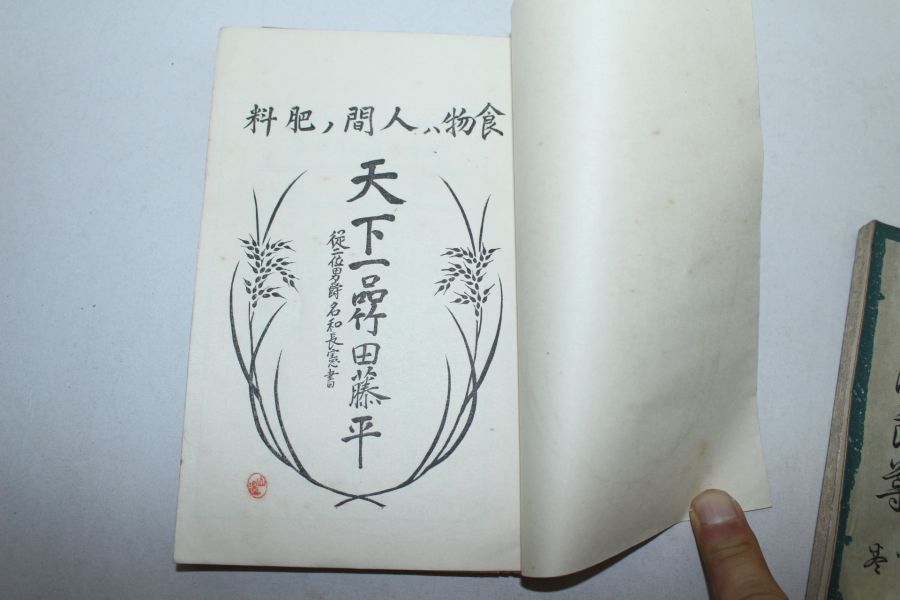 食物ハ人間ノ肥料
天下一品竹田藤平
従三位男爵名和長憲書